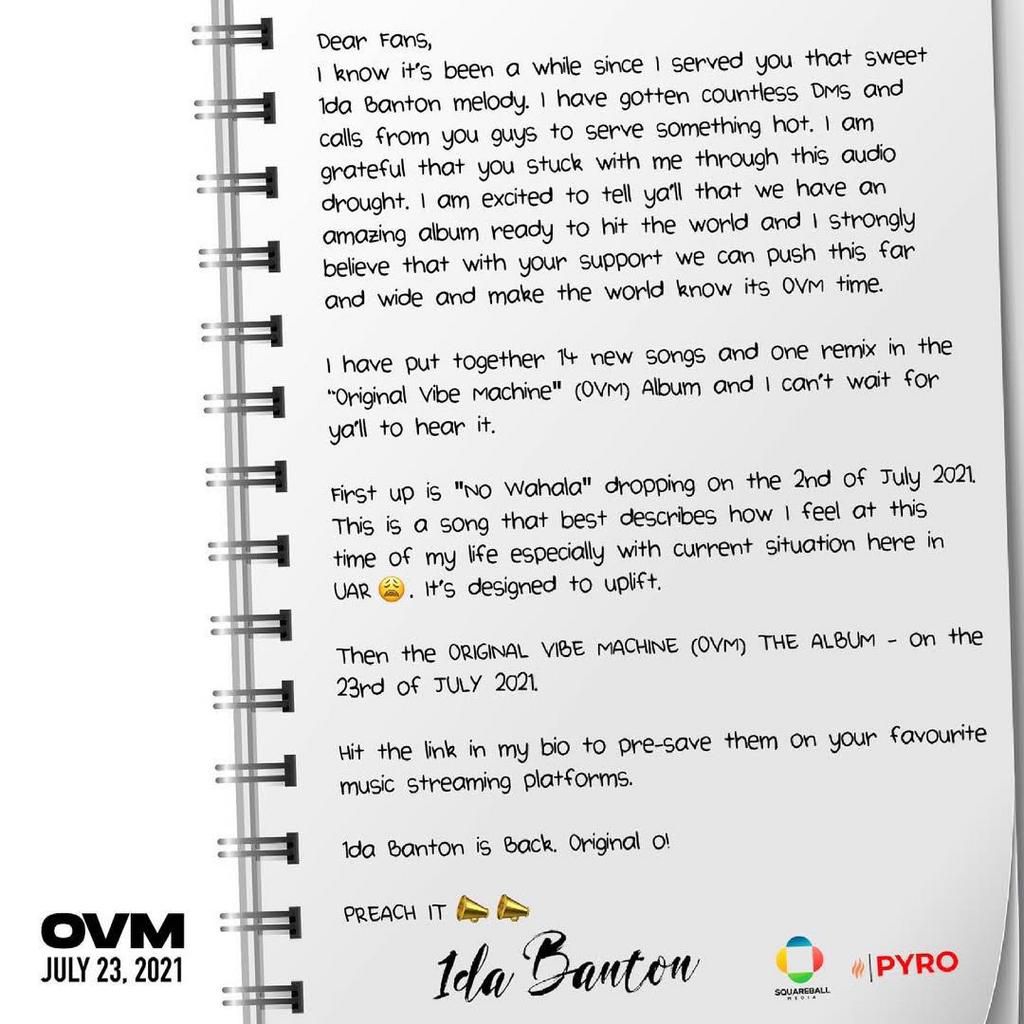 Dear Fans,
I know it's been a while since I served you that sweet
1da Banton melody. I have gotten countless DMs and
calls from you guys to serve something hot. I am
grateful that you stuck with me through this audio
drought. I am excited to tell ya'll that we have an
amazing album ready to hit the world and I strongly
believe that with your support we can push this far
and wide and make the world know its OVM time.
I have put together 14 new songs and one remix in the
"Original Vibe Machine" (OVM) Album and I can't wait for
ya'll to hear it.
First up is "No Wahala" dropping on the 2nd of July 2021.
This is a song that best describes how I feel at this
time of my life especially with current situation here in
UAR 😩. It's designed to uplift.
Then the ORIGINAL VIBE MACHINE (OVM) THE ALBUM - on the
23rd of JULY 2021.
Hit the link in my bio to pre-save them on your favourite
music streaming platforms.
1da Banton is Back. Original O!
PREACH IT 📣📣
1da Banton
OVM
JULY 23, 2021
SQUAREBALL
MEDIA
PYRO